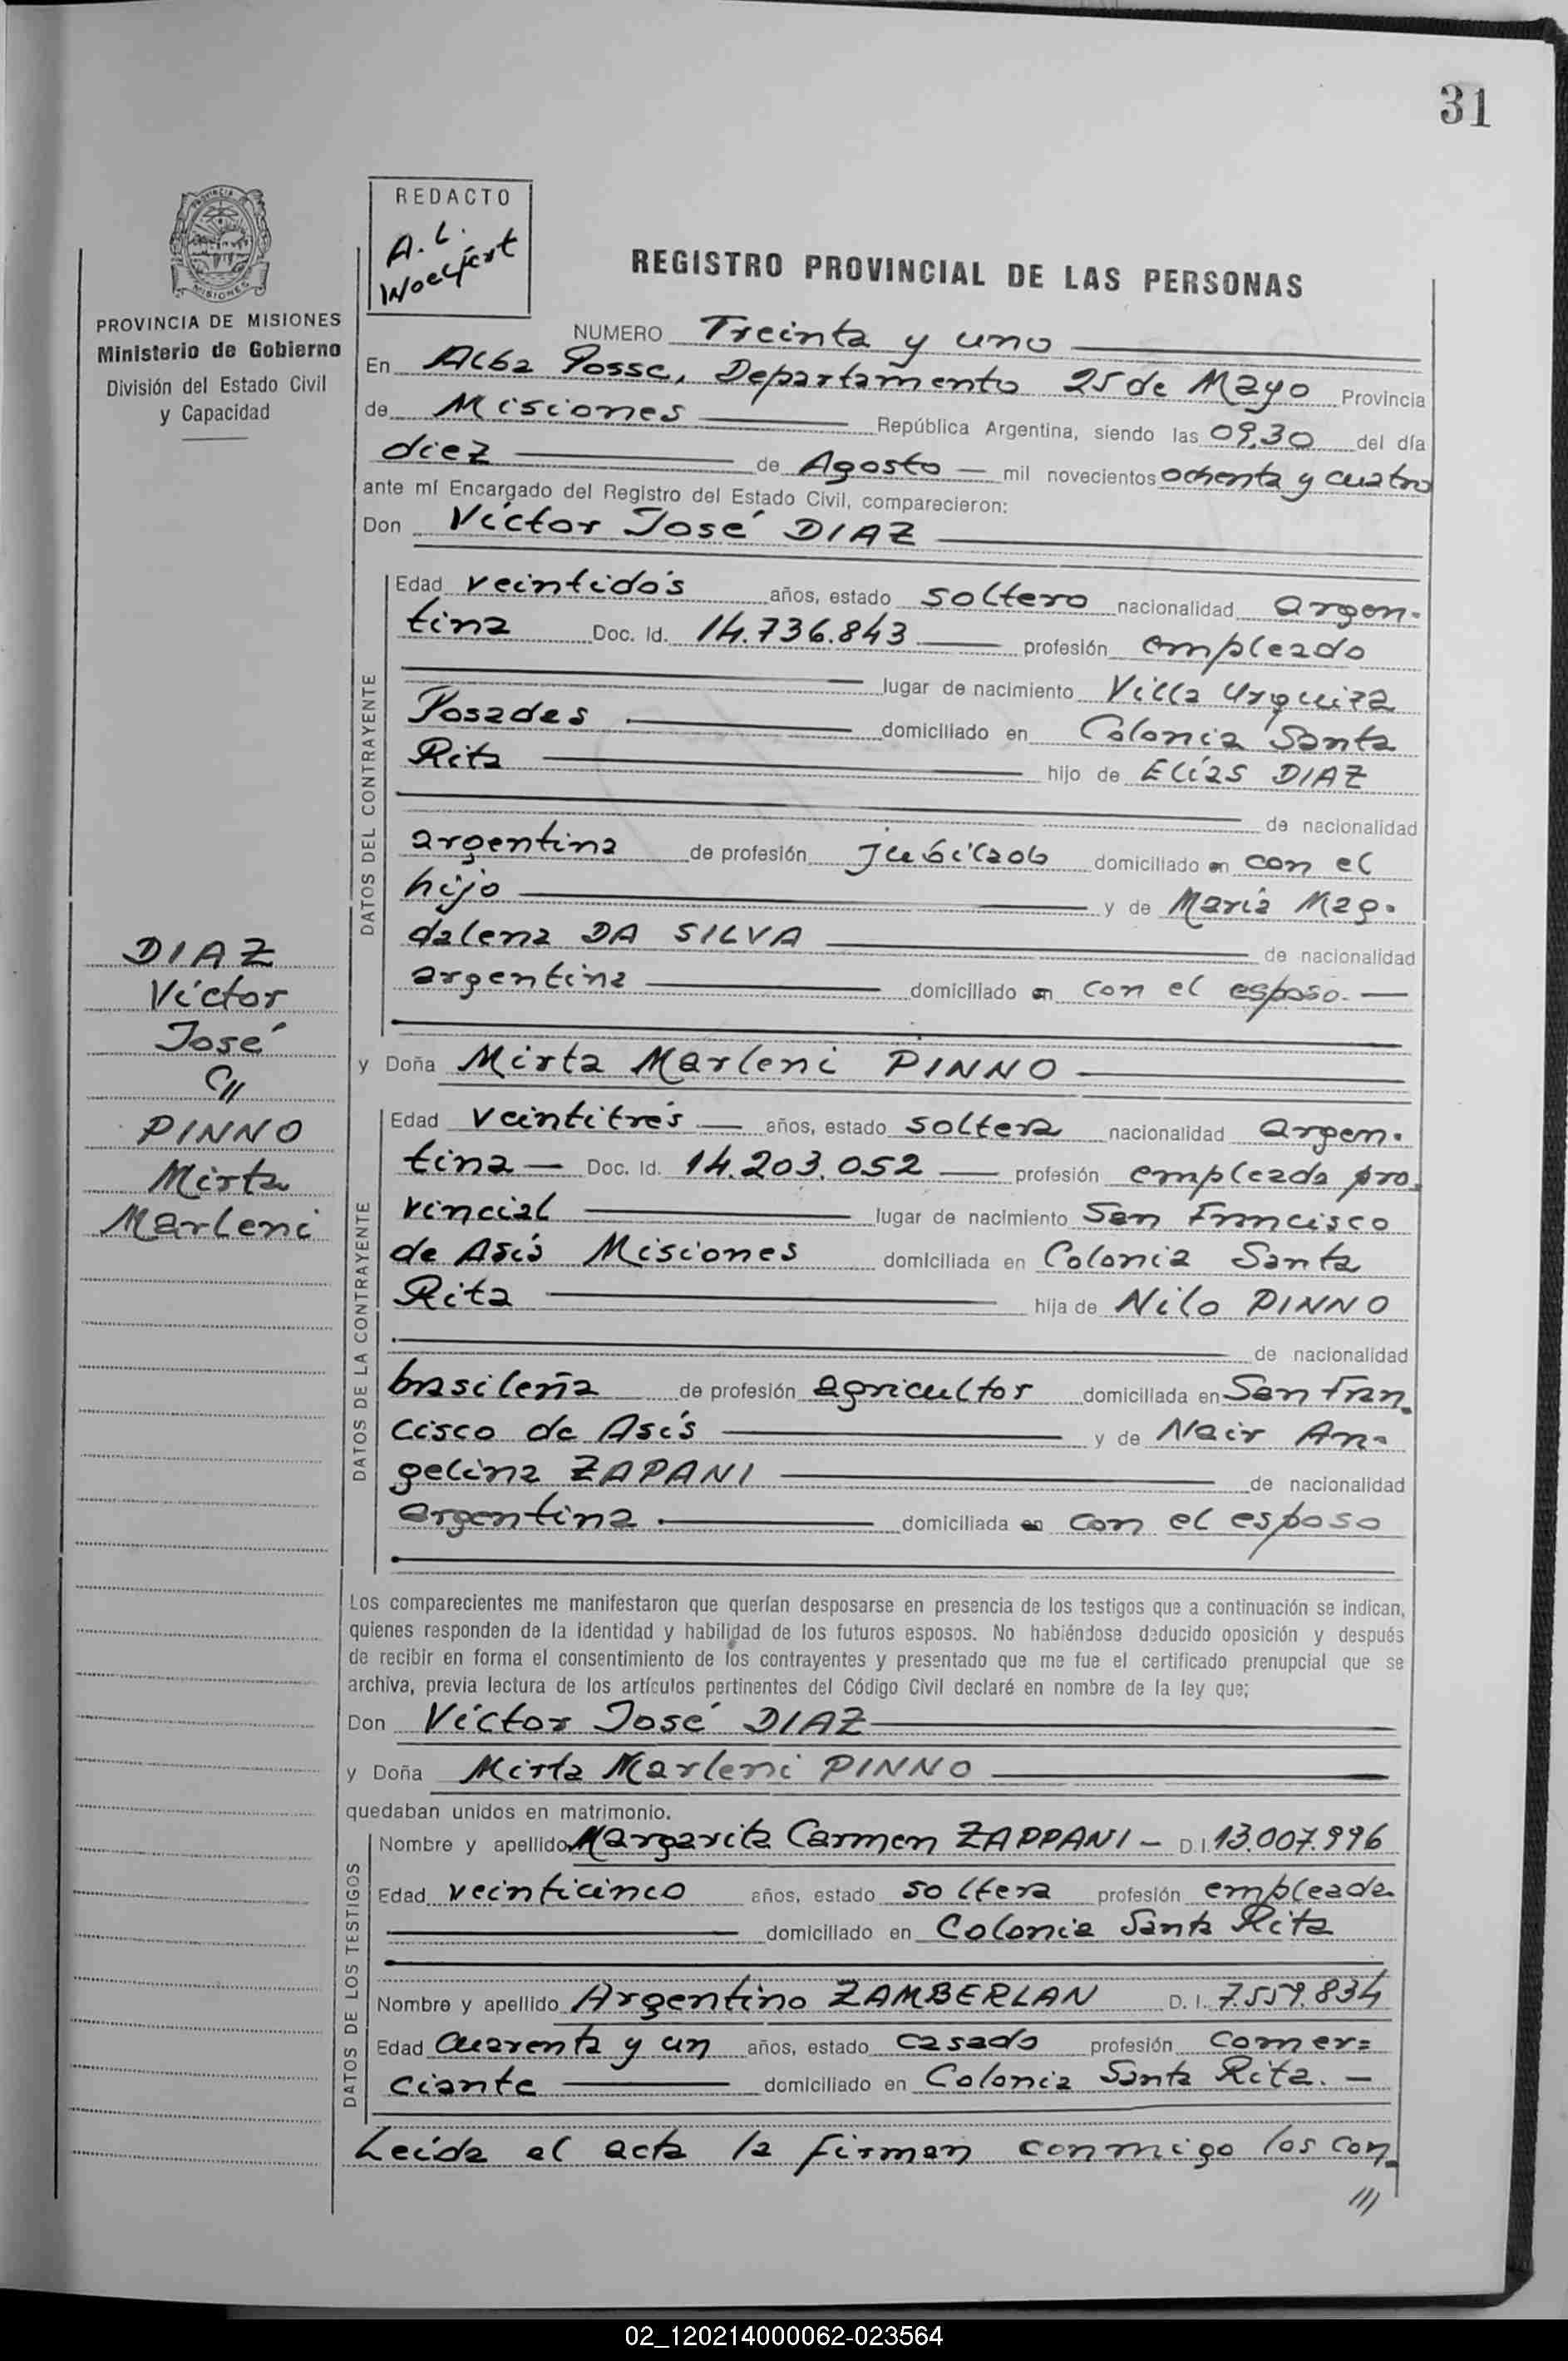 31
REDACTO
A. L.
PROVINCIA DE MISIONES
Ministerio de Gobierno
División del Estado Civil
y Capacidad
REGISTRO PROVINCIAL DE LAS PERSONAS
NUMERO Treinta y uno
En Alba Posse, Departamento 25 de Mayo Provincia
de Misiones República Argentina, siendo las 09,30 del día
diez de Agosto mil novecientos ochenta y cuatro
ante mí Encargado del Registro del Estado Civil, comparecieron:
Don Víctor José DIAZ
DATOS DEL CONTRAYENTE
Edad veintidós años, estado soltero nacionalidad argen-
tina Doc. Id. 14.736.843 profesión empleado
lugar de nacimiento Villa Urquiza
Posadas domiciliado en Colonia Santa
Rita hijo de Elías DIAZ
de nacionalidad
argentina de profesión jubilado domiciliado en con el
hijo y de María Mag-
dalena DA SILVA de nacionalidad
argentina domiciliado en con el esposo.
y Doña Mirta Marleni PINNO
DIAZ
Víctor
José
c//
PINNO
Mirta
Marleni
DATOS DE LA CONTRAYENTE
Edad veintitrés años, estado soltera nacionalidad argen-
tina Doc. Id. 14.203.052 profesión empleada pro-
vincial lugar de nacimiento San Francisco
de Asís Misiones domiciliada en Colonia Santa
Rita hija de Nilo PINNO
de nacionalidad
brasileña de profesión agricultor domiciliada en San Fran-
cisco de Asís y de Nair An-
gelina ZAPANI de nacionalidad
argentina domiciliada en con el esposo
Los comparecientes me manifestaron que querían desposarse en presencia de los testigos que a continuación se indican,
quienes responden de la identidad y habilidad de los futuros esposos. No habiéndose deducido oposición y después
de recibir en forma el consentimiento de los contrayentes y presentado que me fue el certificado prenupcial que se
archiva, previa lectura de los artículos pertinentes del Código Civil declaré en nombre de la ley que;
Don Víctor José DIAZ
y Doña Mirta Marleni PINNO
quedaban unidos en matrimonio.
DATOS DE LOS TESTIGOS
Nombre y apellido Margarita Carmen ZAPPANI - D.I. 13.007.996
Edad veinticinco años, estado soltera profesión empleada
domiciliado en Colonia Santa Rita
Nombre y apellido Argentino ZAMBERLAN D. I. 7.559.834
Edad cuarenta y un años, estado casado profesión comer=
ciante domiciliado en Colonia Santa Rita. -
Leída el acta la firman conmigo los con-
///
02_120214000062-023564